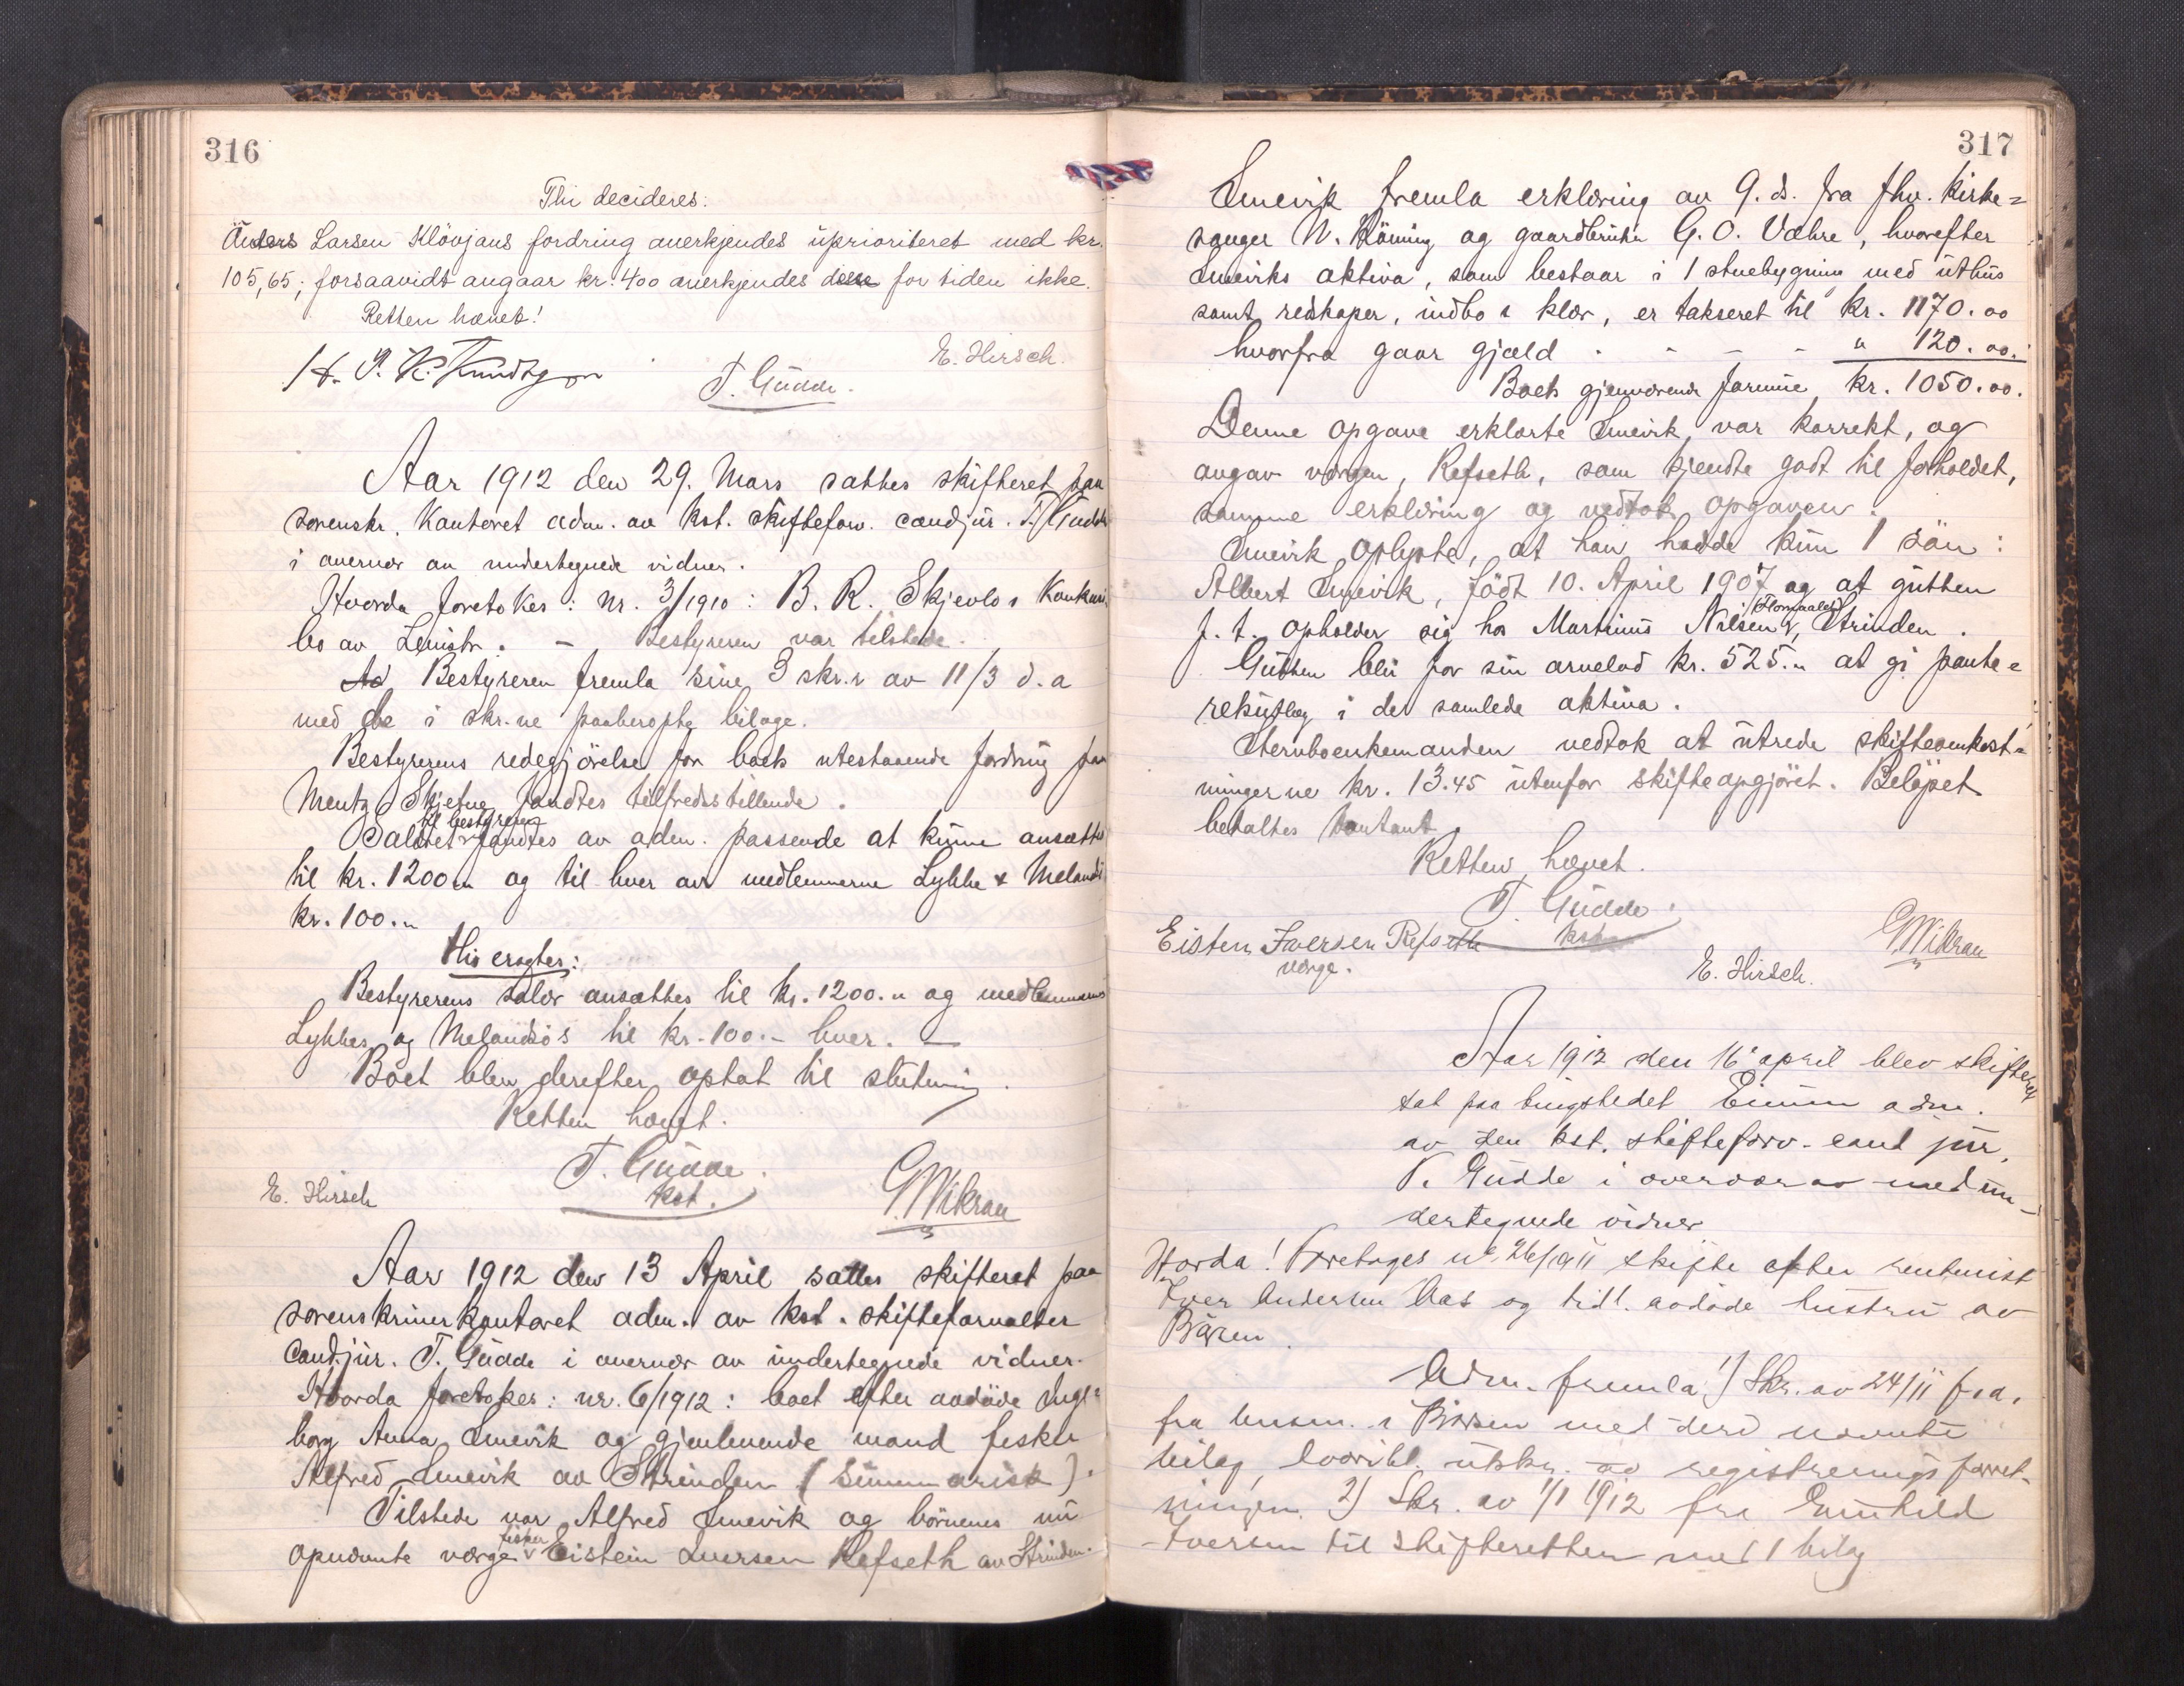 316
Thi decideres:
Anders Larsen Klövjans fordring anerkjendes uprioriteret med kr.
105,65; forsaavidt angaar kr. 400 anerkjendes disse for tiden ikke.
Retten hævet!
E. Hirsch.
T. Gudde.
Aar 1912 den 29. Mars sattes skifteret paa
sorenskr. Kontoret adm. av kst. skifteforv. candjur. T. Gudde
i overvær av undertegnede vidner.
Hvorda foretokes: nr. 3/1910: B. R. Skjevlos Konkurs
bo av Lenistr. – Bestyreren var tilstede.
Ad Bestyreren fremla sine 3 skr.r av 11/3 d. a
med de i skr.ne paaberopte bilage.
Bestyrerens redegjörelse for boets utestaaende fordring paa
Mentz Skjefne fandtes tilfredsstillende.
til bestyreren
Salæret fandtes av adm. passende at kunne ansættes
til kr. 1200.- og til hver av medlemmerne Lykke & Melands
kr. 100.-
Thi eragtes:
Bestyrerens salær ansættes til kr. 1200.- og medlemmernes
Lykkes og Melandsös til kr. 100.- hver. –
Boet blev derefter optat til slutning.
Retten hævet.
T. Gudde.
kst.
E. Hirsch
G. Wikran
Aar 1912 den 13 April sattes skifteret paa
sorenskriverkontoret adm. av kst. skifteforvalter
candjur. T. Gudde i overvær av undertegnede vidner.
Hvorda foretokes: nr. 6/1912: boet efter avdöde Inge-
borg Anna Smevik og gjenlevende mand fisker
Alfred Smevik av Strinden (summarisk).
Tilstede var Alfred Smevik og börnenes nu
fisker
opnævnte værge Eistein Iversen Refseth av Strinden.
317
Smevik fremla erklæring av 9. ds. fra fhv. Kirke-
sanger W. Röning og gaardbruker G. O. Vahre, hvorefter
Smeviks aktiva, som bestaar i 1 stuebygning med uthus
samt redskaper, indbo & klær, er takseret til kr. 1170.00
hvorfra gaar gjæld - - - - " 120.00.
Boets gjenværende formue kr. 1050.00.
Denne opgave erklærte Smevik, var korrekt, og
avgav værgen, Refseth, som kjendte godt til forholdet,
samme erklæring og vedtok opgaven.
Smevik oplyste, at han hadde kun 1 sön:
Albert Smevik, födt 10. April 1907 og at gutten
f. t. opholder sig hos Martinus Nilsen, Strinden.
Gutten blir for sin arvelod kr. 525.- at gi pante-
retsutlæg i de samlede aktiva.
Stervboenkemanden vedtok at utrede skifteomkost-
ningerne kr. 13.45 utenfor skifteopgjöret. Belöpet
betaltes kontant.
Retten hævet.
T. Gudde.
kst.
Eisten Iversen Refseth
værge.
E. Hirsch.
G. Wikran
Aar 1912 den 16 april blev skifteret
sat paa tingstedet Eimm adm.
av den kst. skifteforv. cand jur.
T. Gudde i overvær av med un-
dertegnede vidner
Hvorda! Foretages nr 26/1911 skifte efter rentenist
Iver Andersen Aas og tidl. avdöde hustru av
Börsen
Adm. fremla 1) Skr. av 24/11 f. a.
fra lensm. i Börsen med deri nævnte
bilag, hvoribl. utskr. av registreringsforret-
ningen. 2) Skr. av 1/1 1912 fra Gunhild
Iversen til skifteretten med 1 bilag